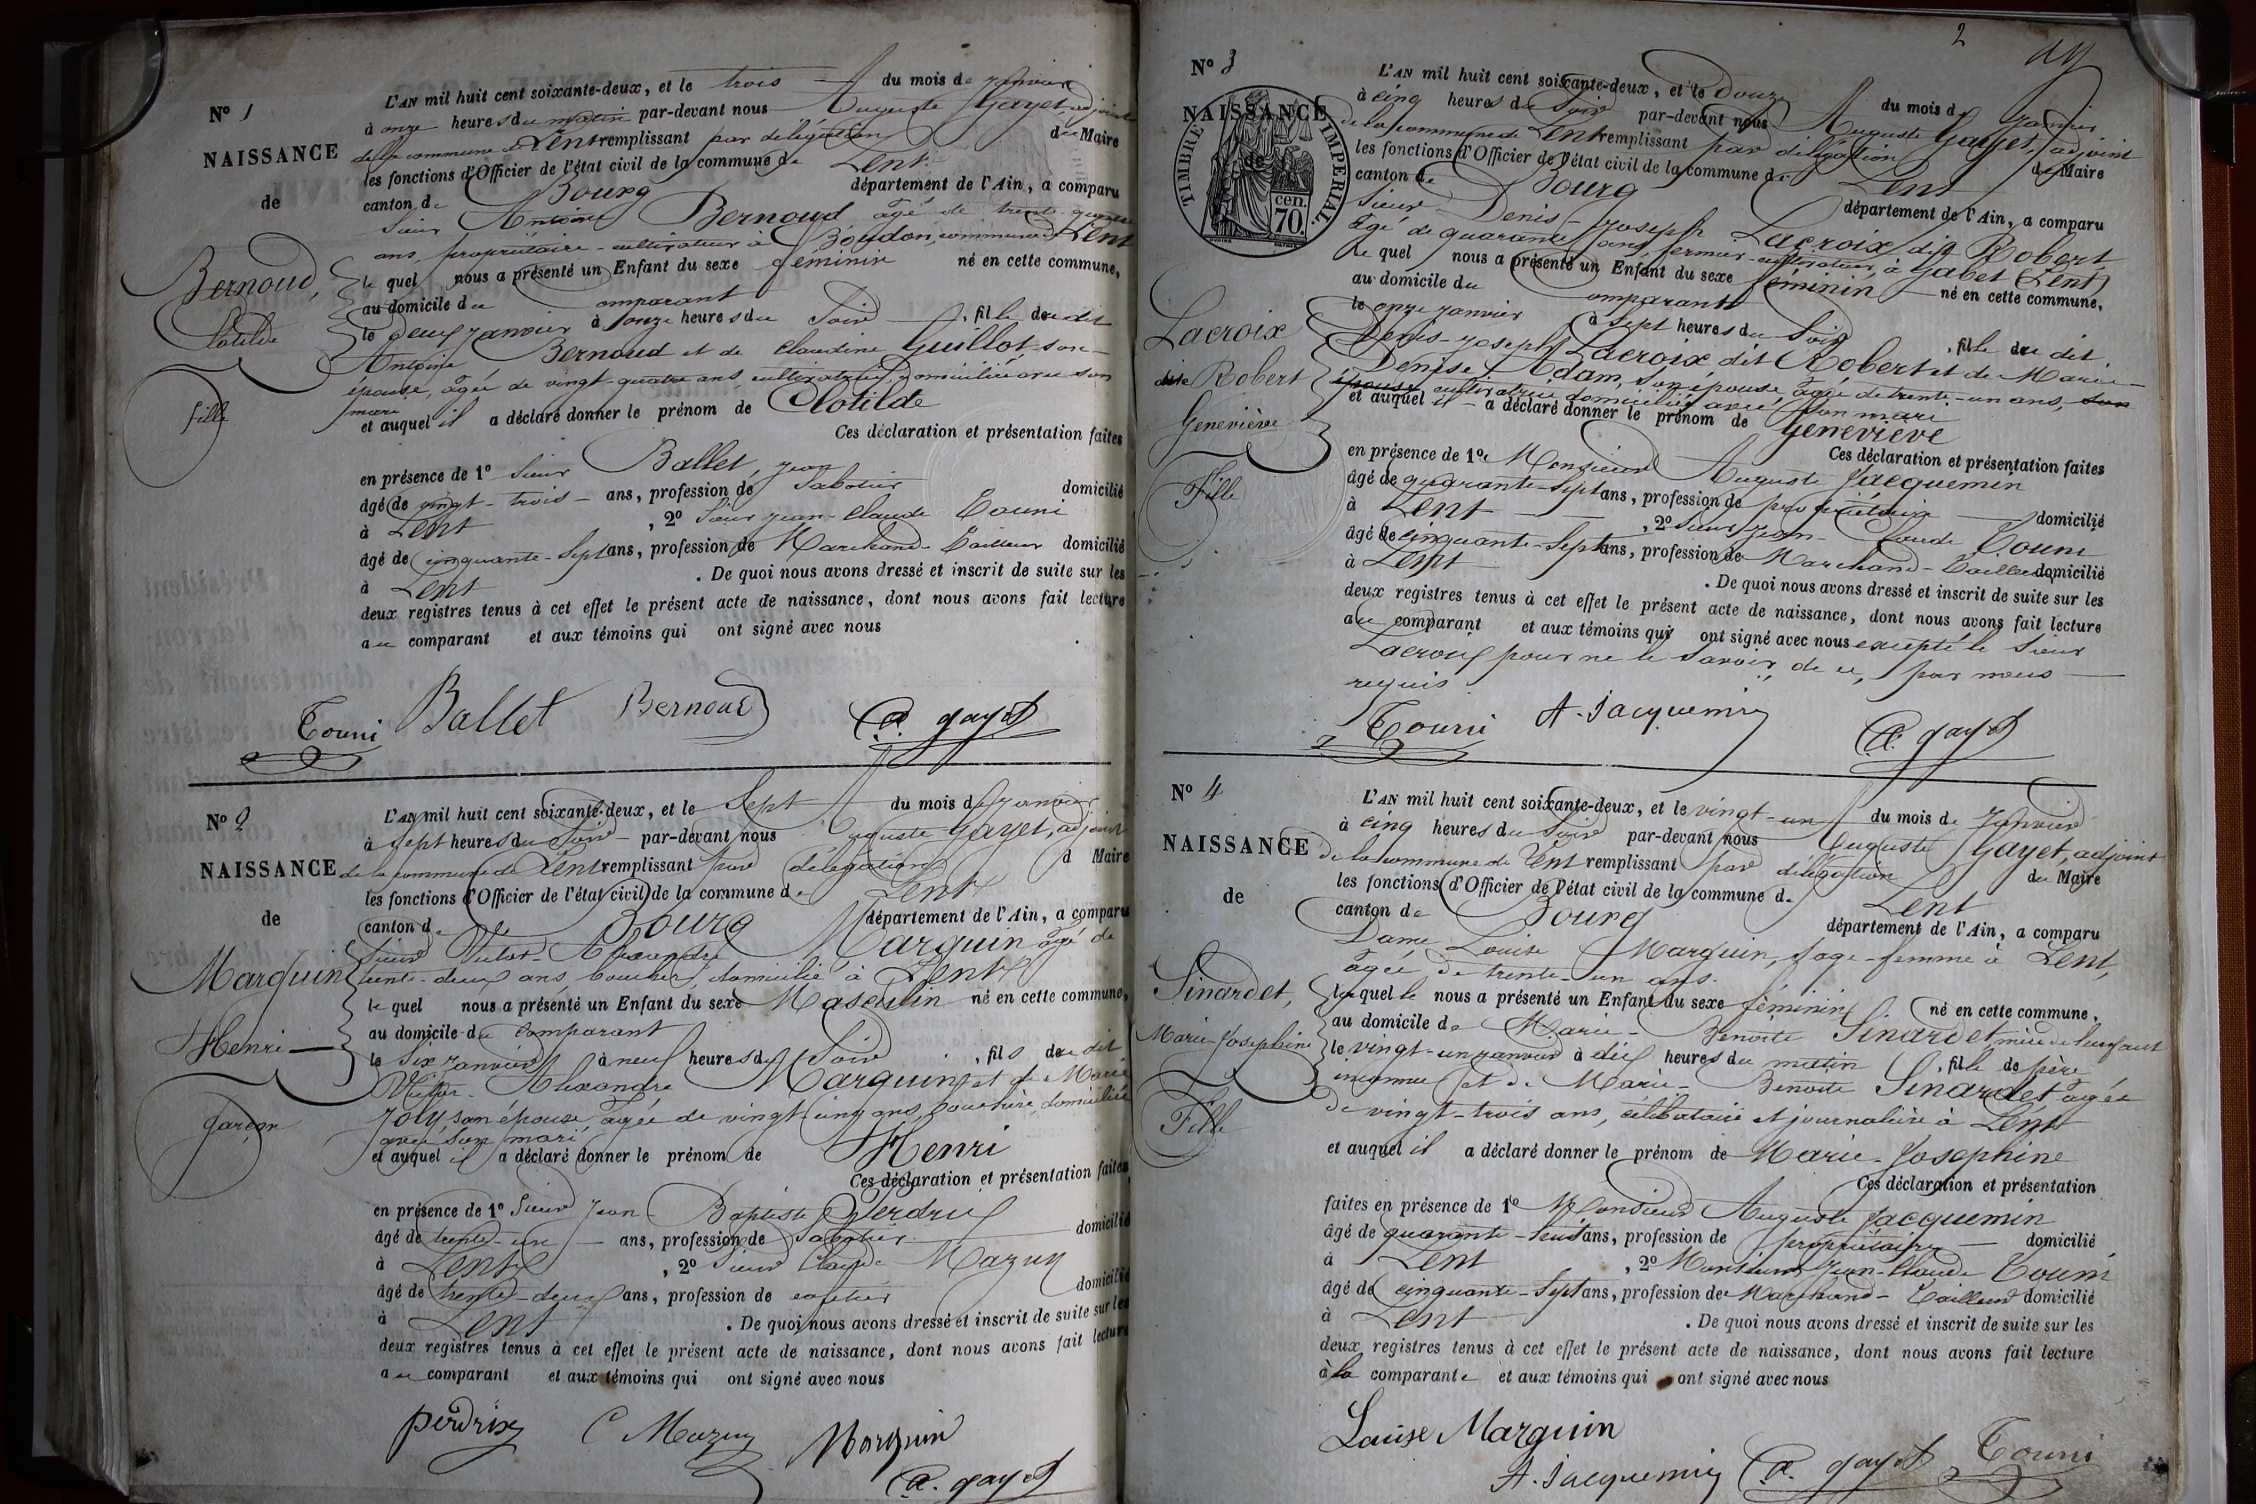 Nº 1
NAISSANCE
de
Bernoud,
Clotilde
fille
L'AN mil huit cent soixante-deux, et le trois du mois de Janvier
à onze heures du matin par-devant nous Auguste Gayet, adjoint
de la commune de Lent remplissant par délégation du Maire
les fonctions d'Officier de l'état civil de la commune de Lent
canton de Bourg département de l'Ain, a comparu
Sieur Antoine Bernoud âgé de trente-quatre
ans, propriétaire-cultivateur à Boudon, commune de Lent
le quel nous a présenté un Enfant du sexe féminin né en cette commune,
au domicile du comparant
le deux janvier à onze heures du Soir, fille du dit
Antoine Bernoud et de Claudine Guillot son
épouse, âgée de vingt-quatre ans cultivatrice, domiciliée avec son
mari
et auquel il a déclaré donner le prénom de Clotilde
Ces déclaration et présentation faites
en présence de 1º Sieur Ballet, Jean
âgé de vingt-trois ans, profession de Sabotier domicilié
à Lent, 2º Sieur Jean-Claude Touni
âgé de cinquante-sept ans, profession de Marchand-Tailleur domicilié
à Lent. De quoi nous avons dressé et inscrit de suite sur les
deux registres tenus à cet effet le présent acte de naissance, dont nous avons fait lecture
au comparant et aux témoins qui ont signé avec nous
Touni Ballet Bernoud A. Gayet
Nº 2
NAISSANCE
de
Marguin
Henri
garçon
L'AN mil huit cent soixante-deux, et le Sept du mois de Janvier
à Sept heures du Soir par-devant nous Auguste Gayet, adjoint
de la commune de Lent remplissant par délégation d Maire
les fonctions d'Officier de l'état civil de la commune de Lent
canton de Bourg département de l'Ain, a comparu
Sieur Victor-Alexandre Marguin âgé de
trente-deux ans, boucher, domicilié à Lent
le quel nous a présenté un Enfant du sexe Masculin né en cette commune,
au domicile du comparant
le Six janvier à neuf heures du Soir, fils du dit
Victor-Alexandre Marguin et de Marie
Joly, son épouse, âgée de vingt cinq ans, bouchère, domiciliée
avec son mari
et auquel il a déclaré donner le prénom de Henri
Ces déclaration et présentation faites
en présence de 1º Sieur Jean Baptiste Perdrix
âgé de trente-un ans, profession de Sabotier domicilié
à Lent, 2º Sieur Claude Mazuy
âgé de trente-deux ans, profession de domicilié
à Lent. De quoi nous avons dressé et inscrit de suite sur les
deux registres tenus à cet effet le présent acte de naissance, dont nous avons fait lecture
au comparant et aux témoins qui ont signé avec nous
perdrix C Mazuy Marguin
A. Gayet
2
Nº 3
NAISSANCE
de
TIMBRE IMPERIAL.
70 cen.
Lacroix
dite Robert
Geneviève
Fille
L'AN mil huit cent soixante-deux, et le Douze du mois de Janvier
à cinq heures du Soir par-devant nous Auguste Gayet, adjoint
de la commune de Lent remplissant par délégation du Maire
les fonctions d'Officier de l'état civil de la commune de Lent
canton de Bourg département de l'Ain, a comparu
Sieur Denis-Joseph Lacroix dit Robert
âgé de quarante cinq fermier-cultivateur, à Gabet (Lent)
le quel nous a présenté un Enfant du sexe féminin né en cette commune,
au domicile du comparant
le onze janvier à Sept heures du Soir, fille du dit
Denis-Joseph Lacroix dit Robert et de Marie-
Denise Adam, son épouse, âgée de trente-un ans, son
épouse cultivatrice domiciliée avec son mari
et auquel il a déclaré donner le prénom de Geneviève
Ces déclaration et présentation faites
en présence de 1º Monsieur Auguste Jacquemin
âgé de quarante-sept ans, profession de propriétaire domicilié
à Lent, 2º Sieur Jean-Claude Touni
âgé de cinquante-sept ans, profession de Marchand-Tailleur domicilié
à Lent. De quoi nous avons dressé et inscrit de suite sur les
deux registres tenus à cet effet le présent acte de naissance, dont nous avons fait lecture
au comparant et aux témoins qui ont signé avec nous excepté le Sieur
Lacroix pour ne le savoir, de ce, par nous
requis
Touni A. Jacquemin A. Gayet
Nº 4
NAISSANCE
de
Sinardet,
Marie-Josephine
Fille
L'AN mil huit cent soixante-deux, et le vingt-un du mois de Janvier
à cinq heures du Soir par-devant nous Auguste Gayet, adjoint
de la commune de Lent remplissant par délégation du Maire
les fonctions d'Officier de l'état civil de la commune de Lent
canton de Bourg département de l'Ain, a comparu
Dame Louise Marguin, sage-femme à Lent,
âgée de trente-un ans.
laquelle nous a présenté un Enfant du sexe féminin né en cette commune,
au domicile de Marie-Benoite Sinardet mère de l'enfant
le vingt-un janvier à dix heures du matin, fille de père
inconnu et de Marie-Benoite Sinardet âgée
de vingt-trois ans, célibataire et journalière à Lent
et auquel il a déclaré donner le prénom de Marie-Josephine
Ces déclaration et présentation
faites en présence de 1º Monsieur Auguste Jacquemin
âgé de quarante-huit ans, profession de propriétaire domicilié
à Lent, 2º Monsieur Jean-Claude Touni
âgé de cinquante-sept ans, profession de Marchand-Tailleur domicilié
à Lent. De quoi nous avons dressé et inscrit de suite sur les
deux registres tenus à cet effet le présent acte de naissance, dont nous avons fait lecture
à la comparante et aux témoins qui ont signé avec nous
Louise Marguin
A. Jacquemin A. Gayet Touni